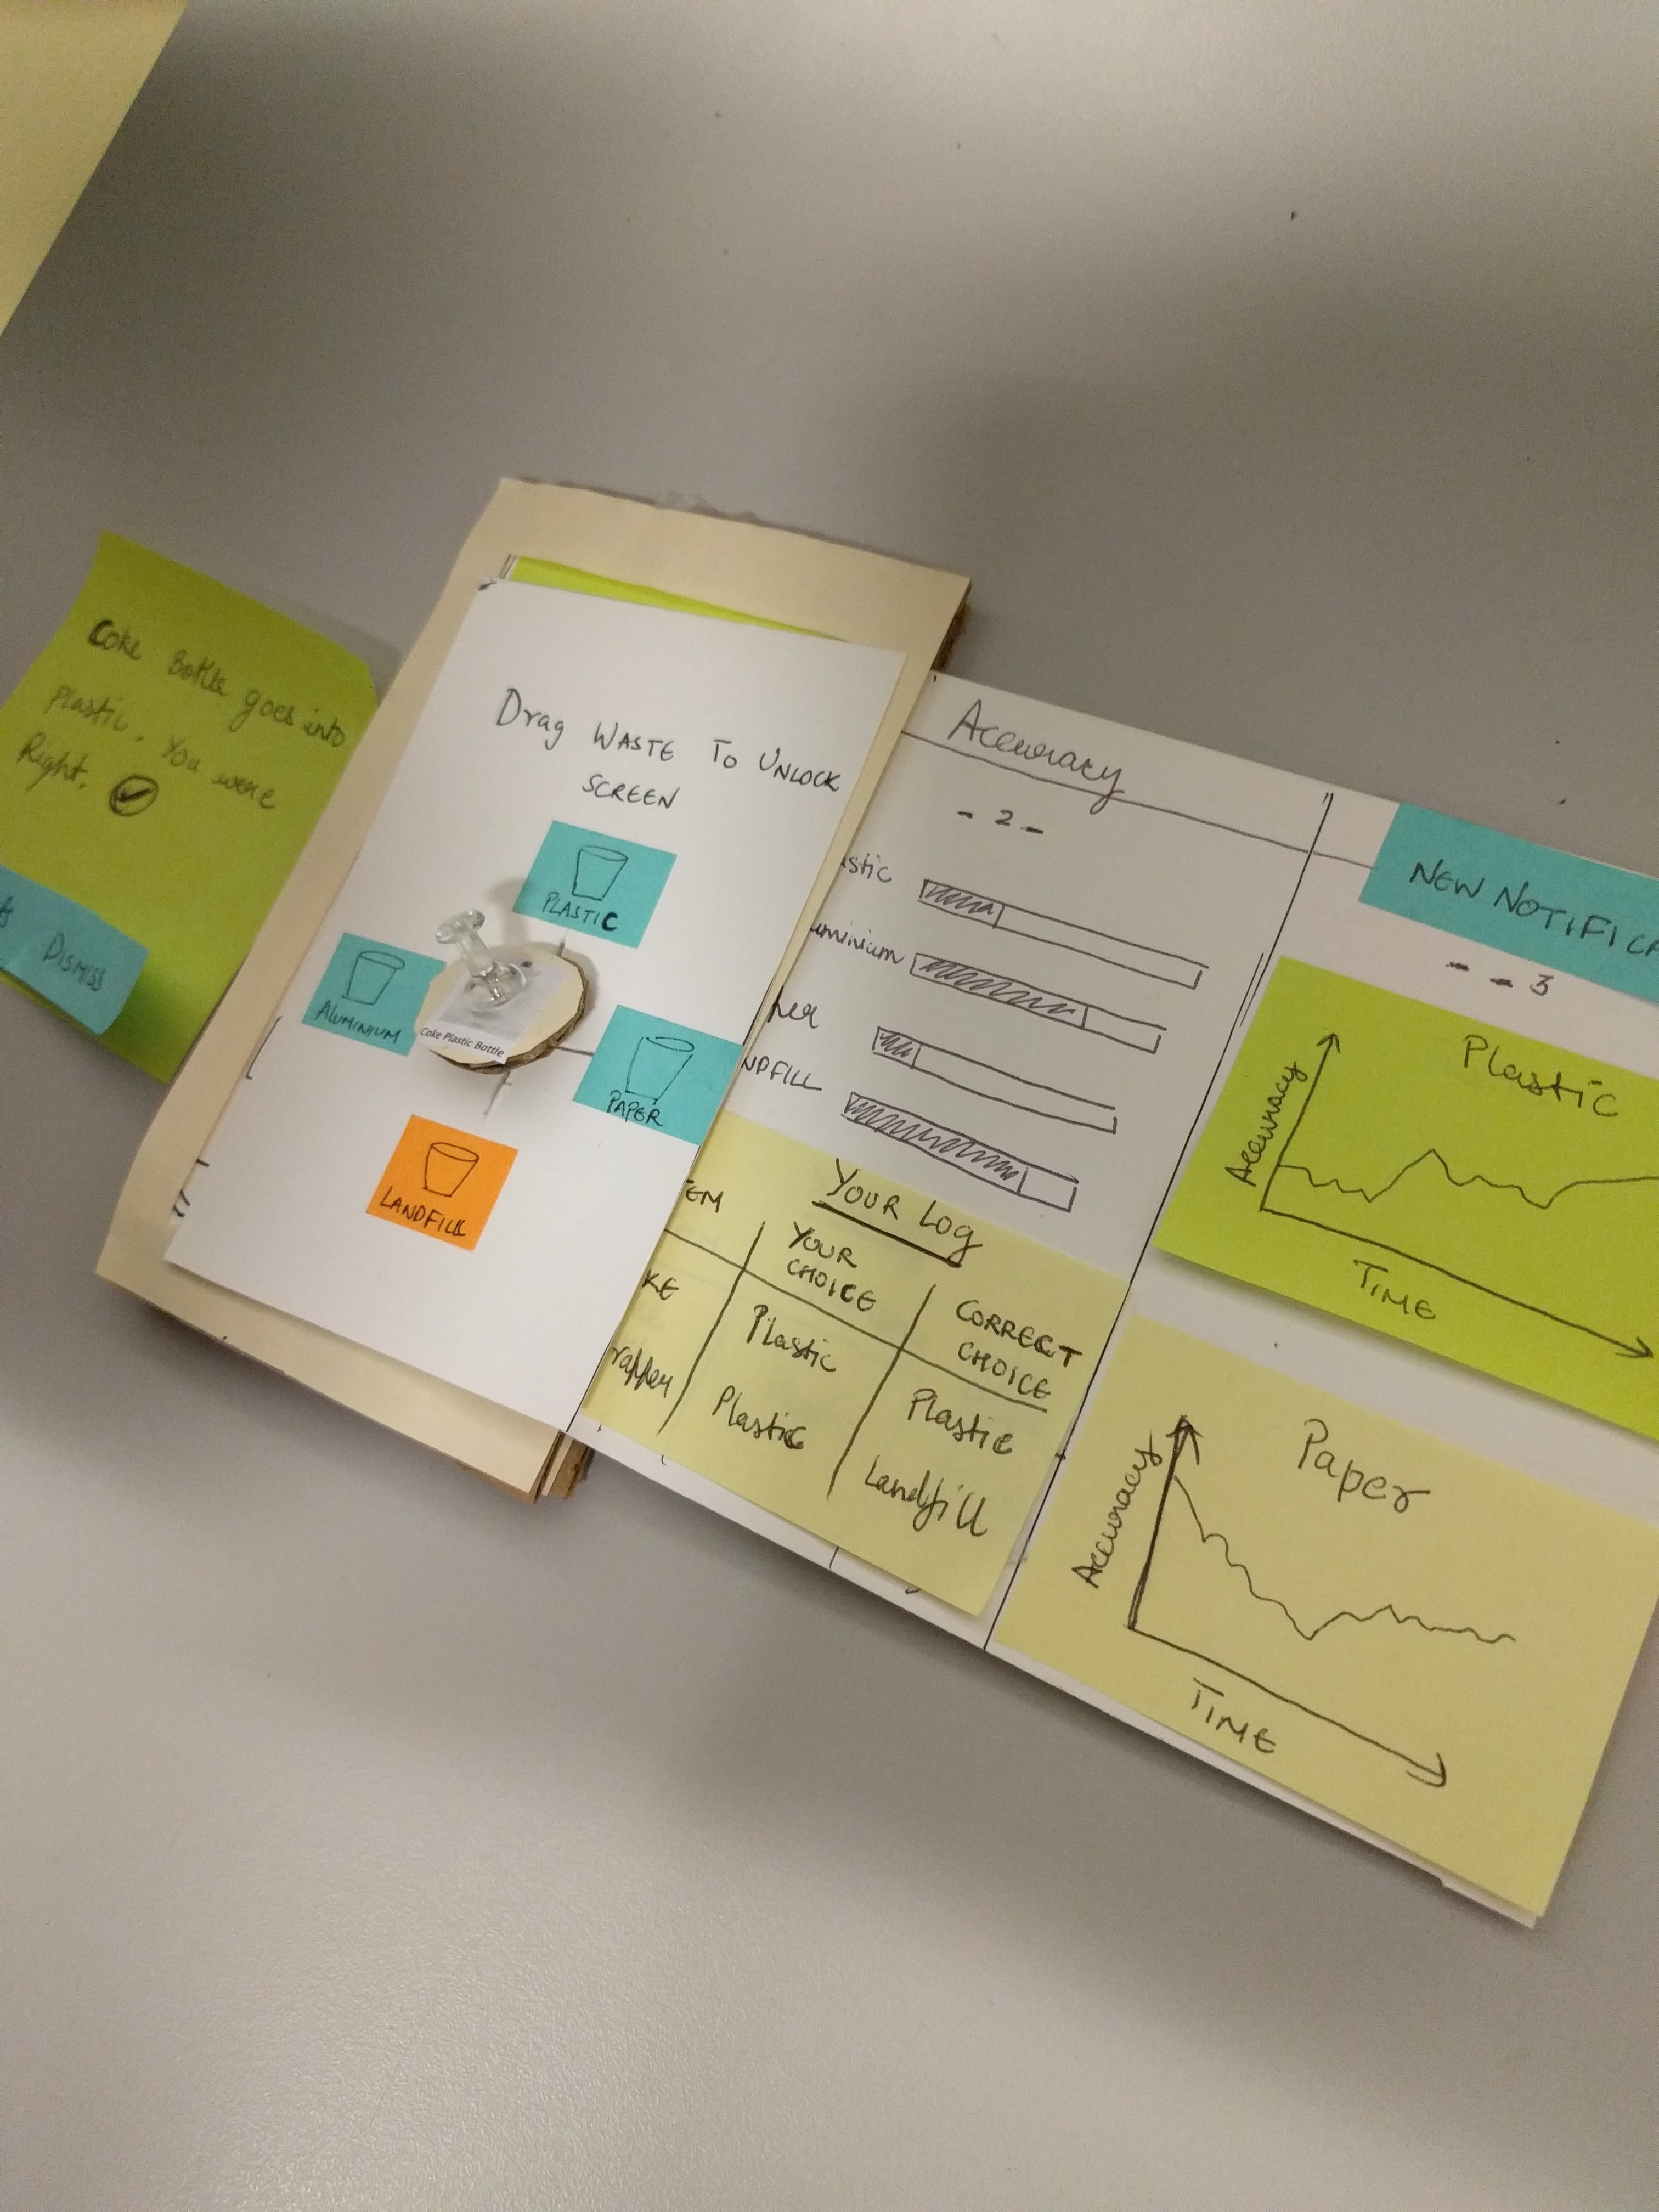 Coke Bottle goes into
Plastic. You were
Right.
DISMISS
Drag WASTE To UNLOCK
SCREEN
PLASTIC
ALUMINIUM
Coke Plastic Bottle
PAPER
LANDFILL
Accuracy
- 2 -
astic
uminium
per
NDFILL
YOUR LOG
TEM
YOUR
CHOICE
CORRECT
CHOICE
KE
Plastic
Plastic
rapper
Plastic
Landfill
NEW NOTIFICA
- - 3
Plastic
Accuracy
TIME
Paper
Accuracy
TIME